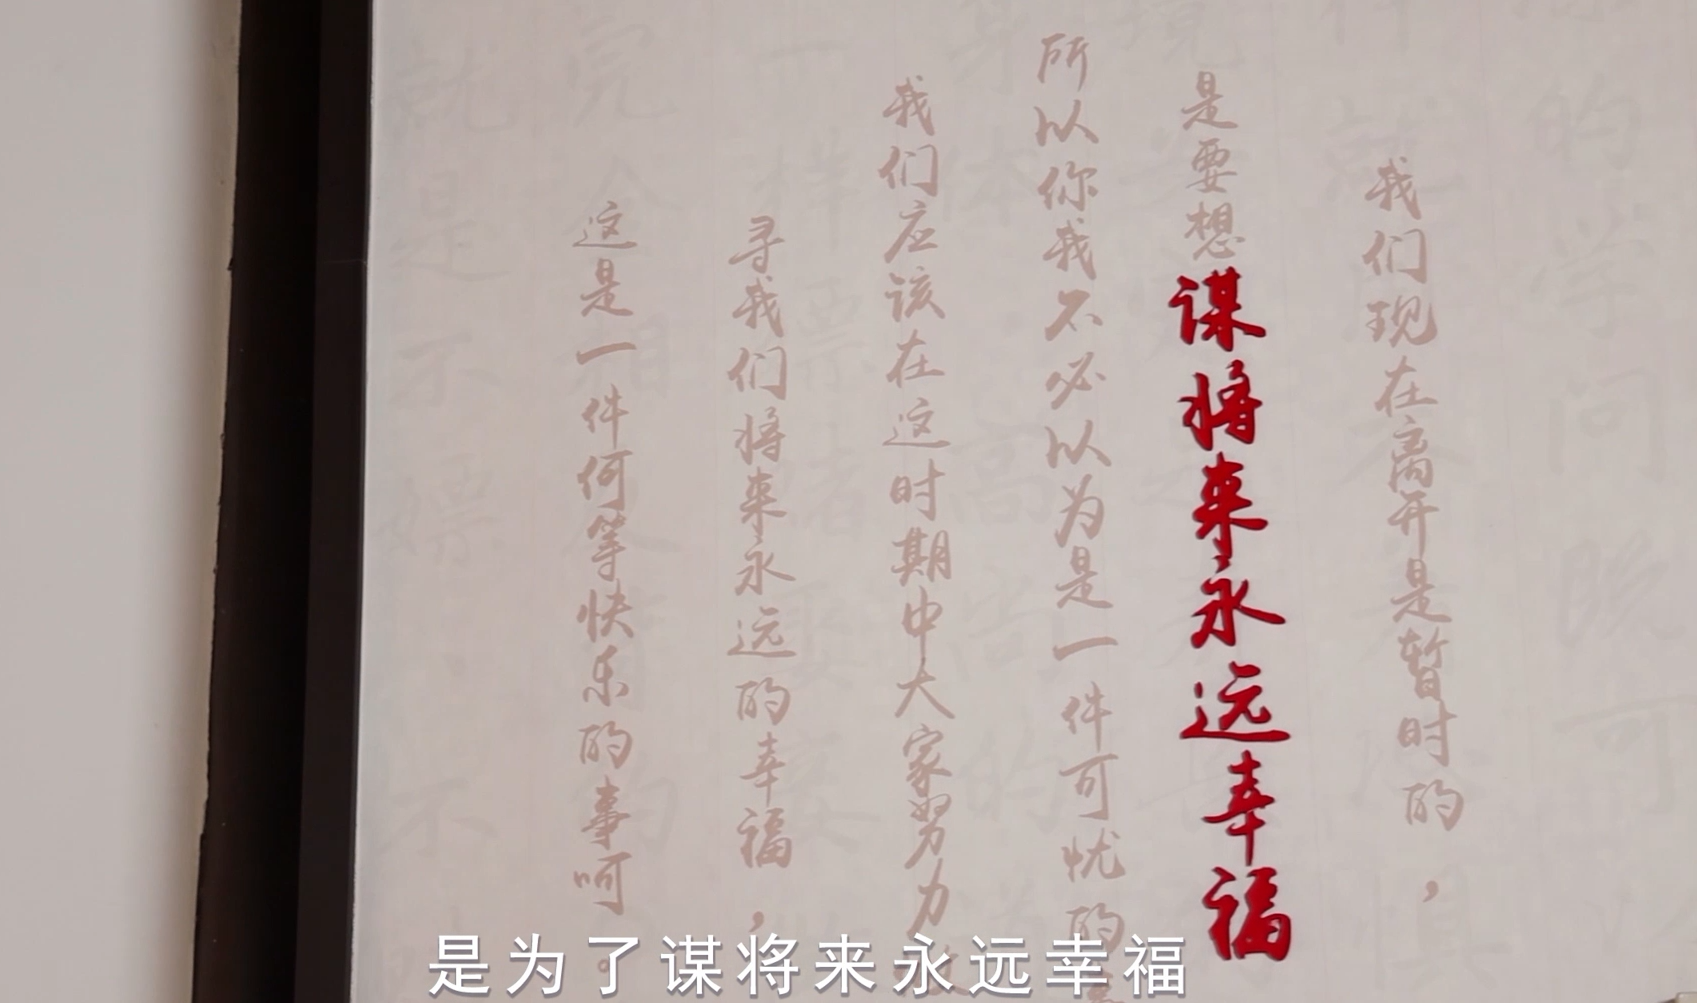 我们现在离开是暂时的，
是要想谋将来永远幸福
所以你我不必以为是一件可忧的
我们应该在这时期中大家努力
寻我们将来永远的幸福，
这是一件何等快乐的事呵
是为了谋将来永远幸福